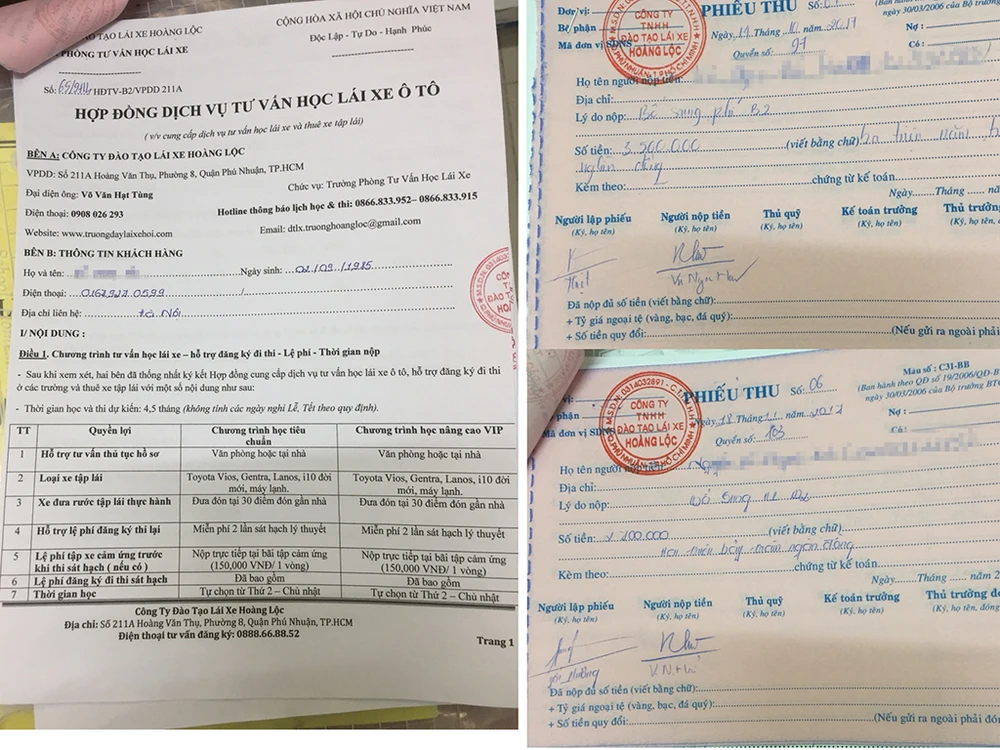 ĐÀO TẠO LÁI XE HOÀNG LỘC
PHÒNG TƯ VẤN HỌC LÁI XE
CỘNG HÒA XÃ HỘI CHỦ NGHĨA VIỆT NAM
Độc Lập - Tự Do - Hạnh Phúc
Số: /HĐTV-B2/VPDD 211A
HỢP ĐỒNG DỊCH VỤ TƯ VẤN HỌC LÁI XE Ô TÔ
( v/v cung cấp dịch vụ tư vấn học lái xe và thuê xe tập lái)
BÊN A: CÔNG TY ĐÀO TẠO LÁI XE HOÀNG LỘC
VPDD: Số 211A Hoàng Văn Thụ, Phường 8, Quận Phú Nhuận, TP.HCM
Đại diện ông: Võ Văn Hạt Tùng
Chức vụ: Trưởng Phòng Tư Vấn Học Lái Xe
Điện thoại: 0908 026 293
Hotline thông báo lịch học & thi: 0866.833.952– 0866.833.915
Website: www.truongdaylaixehoi.com
Email: dtlx.truonghoangloc@gmail.com
BÊN B: THÔNG TIN KHÁCH HÀNG
Họ và tên: Ngày sinh: 02/09/1985
Điện thoại:
Địa chỉ liên hệ: Hà Nội
I/ NỘI DUNG :
Điều 1. Chương trình tư vấn học lái xe – hỗ trợ đăng ký đi thi - Lệ phí - Thời gian nộp
- Sau khi xem xét, hai bên đã thống nhất ký kết Hợp đồng cung cấp dịch vụ tư vấn học lái xe ô tô, hỗ trợ đăng ký đi thi
ở các trường và thuê xe tập lái với một số nội dung như sau:
- Thời gian học và thi dự kiến: 4,5 tháng (không tính các ngày nghỉ Lễ, Tết theo quy định).
TT Quyền lợi Chương trình học tiêu chuẩn Chương trình học nâng cao VIP
1 Hỗ trợ tư vấn thủ tục hồ sơ Văn phòng hoặc tại nhà Văn phòng hoặc tại nhà
2 Loại xe tập lái Toyota Vios, Gentra, Lanos, i10 đời mới, máy lạnh. Toyota Vios, Gentra, Lanos, i10 đời mới, máy lạnh.
3 Xe đưa rước tập lái thực hành Đưa đón tại 30 điểm đón gần nhà Đưa đón tại 30 điểm đón gần nhà
4 Hỗ trợ lệ phí đăng ký thi lại Miễn phí 2 lần sát hạch lý thuyết Miễn phí 2 lần sát hạch lý thuyết
5 Lệ phí tập xe cảm ứng trước khi thi sát hạch ( nếu có ) Nộp trực tiếp tại bãi tập cảm ứng (150,000 VNĐ/ 1 vòng) Nộp trực tiếp tại bãi tập cảm ứng (150,000 VNĐ/ 1 vòng)
6 Lệ phí đăng ký đi thi sát hạch Đã bao gồm Đã bao gồm
7 Thời gian học Tự chọn từ Thứ 2 – Chủ nhật Tự chọn từ Thứ 2 – Chủ nhật
Công Ty Đào Tạo Lái Xe Hoàng Lộc
Địa chỉ: Số 211A Hoàng Văn Thụ, Phường 8, Quận Phú Nhuận, TP.HCM
Điện thoại tư vấn đăng ký: 0888.66.88.52
Trang 1
Đơn vị:
Bộ phận
Mã đơn vị SDNS
CÔNG TY
TNHH
ĐÀO TẠO LÁI XE
HOÀNG LỘC
PHIẾU THU Số:
Ngày 19 Tháng 10 năm 2017
Quyển số: 97
ngày 30/03/2006 của Bộ trưởng
Nợ :
Có :
Họ tên người nộp tiền
Địa chỉ:
Lý do nộp: Bổ sung phí B2
Số tiền: 3.500.000 (viết bằng chữ) ba triệu năm
nghìn đồng
Kèm theo: chứng từ kế toán
Ngày Tháng năm
Người lập phiếu Người nộp tiền Thủ quỹ Kế toán trưởng
(Ký, họ tên) (Ký, họ tên) (Ký, họ tên) (Ký, họ tên)
Đã nộp đủ số tiền (viết bằng chữ):
+ Tỷ giá ngoại tệ (vàng, bạc, đá quý)
+ Số tiền quy đổi: (Nếu gửi ra ngoài phải
phận
Mã đơn vị SDNS
M.S.D.N: 0314032891
CÔNG TY
TNHH
ĐÀO TẠO LÁI XE
HOÀNG LỘC
PHIẾU THU Số: 06
Ngày 18 Tháng 11 năm 2017
Quyển số: 103
Mẫu số: C31-BB
(Ban hành theo QĐ số 19/2006/QĐ-B
ngày 30/03/2006 của Bộ trưởng BT
Nợ :
Có :
Họ tên người
Địa chỉ:
Lý do nộp:
Số tiền: (viết bằng chữ)
Kèm theo: chứng từ kế toán
Ngày Tháng năm 2
Người lập phiếu Người nộp tiền Thủ quỹ Kế toán trưởng
(Ký, họ tên) (Ký, họ tên) (Ký, họ tên) (Ký, họ tên)
Đã nộp đủ số tiền (viết bằng chữ):
+ Tỷ giá ngoại tệ (vàng, bạc, đá quý)
+ Số tiền quy đổi: (Nếu gửi ra ngoài phải đón